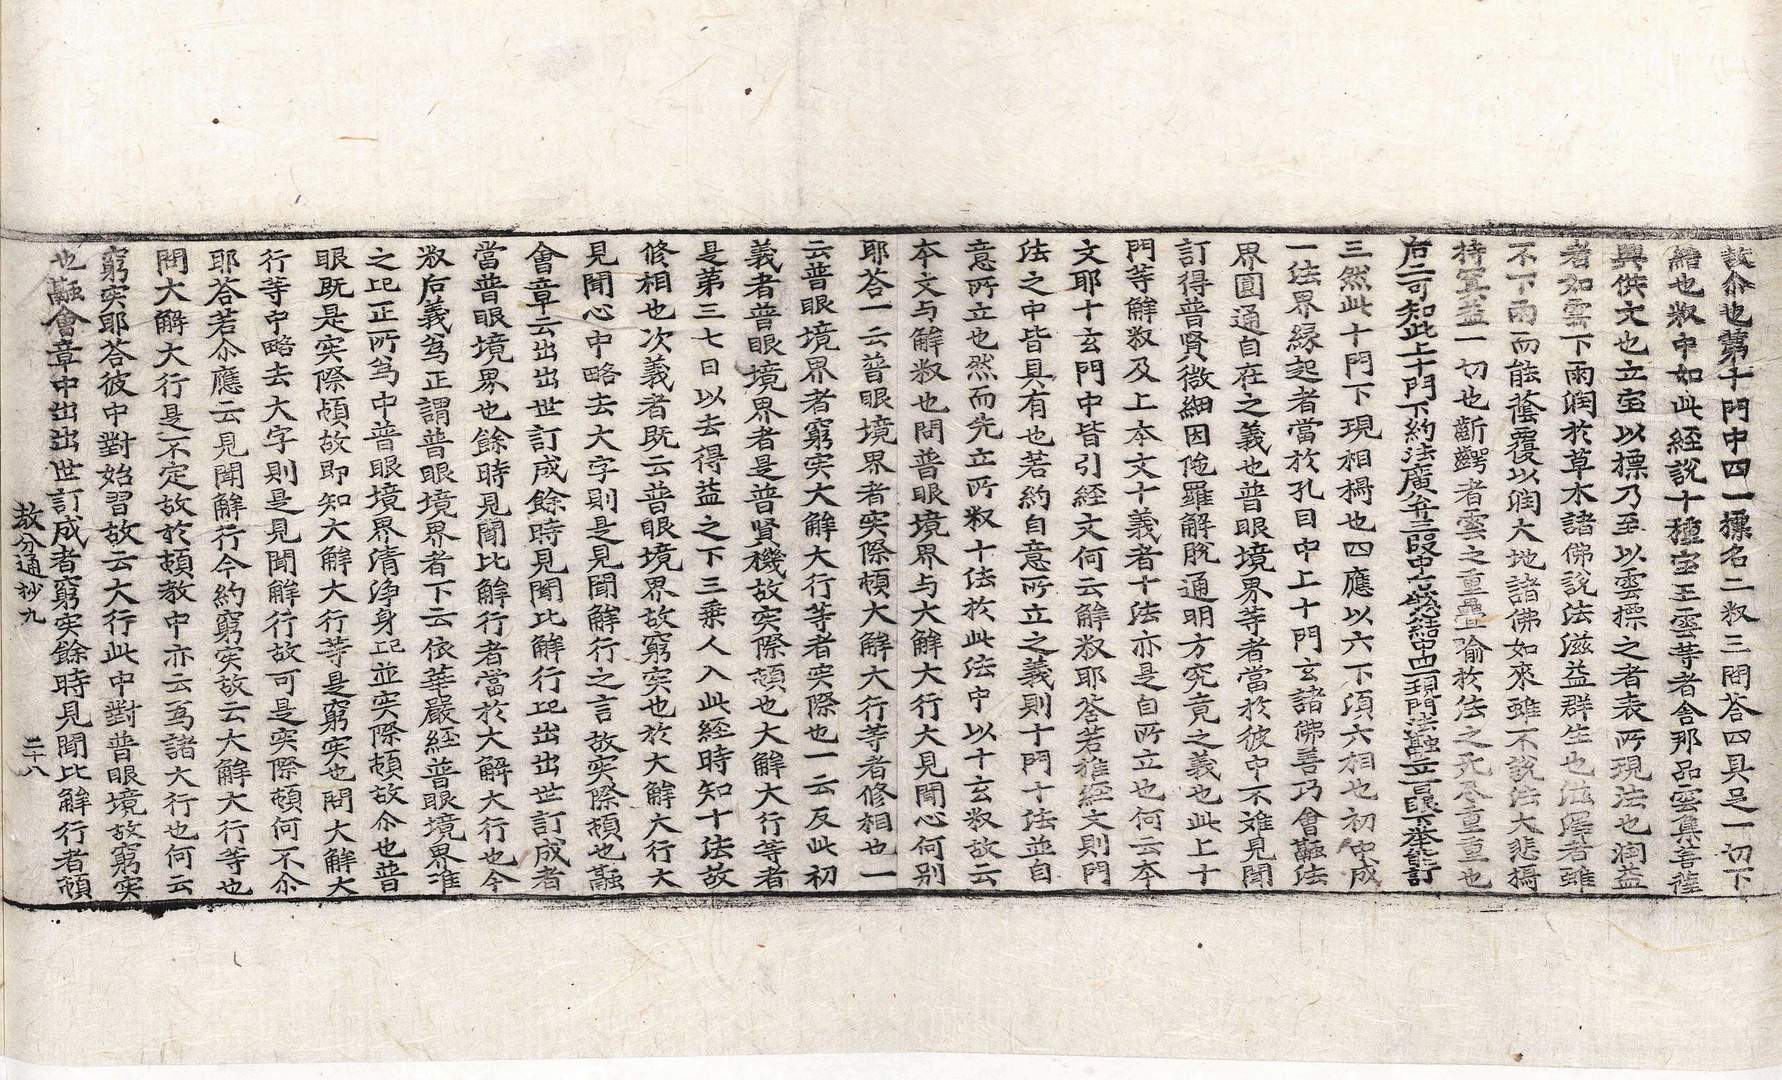 故尒也第十門中四一摽名二𥼶三問荅四具足一切下
結也𥼶中如此経說十種宝王雲䓁者舍那品雲集菩薩
興供文也立宝以摽乃至以雲摽之者表所現法也潤益
者如雲下雨润於草木諸佛說法滋益群生也滋澤者雖
不下雨而能蔭覆以润大地諸佛如來雖不說法大悲
持冥益一切也斷齶者雲之重疊喻於法之无尽重重也
后二可知此上十門下約法廣弁三段中
三然此十門下現相揭也四應以六下湏六相也初中成
一法界縁起者當於孔目中上十門玄諸佛善巧會融法
界圓通自在之義也普眼境界等者當於彼中不难見聞
訂得普賢微細因陁羅解脫通明方究竟之義也此上十
門等解𥼶及上本文十義者十法亦是自所立也何云本
文耶十玄門中皆引経文何云解𥼶耶荅若推経文則門
法之中皆具有也若約自意所立之義則十門十法並自
意所立也然而先立所𥼶十法於此法中以十玄𥼶故云
本文与解𥼶也問普眼境界与大解大行大見聞心何別
耶荅一云普眼境界者实際頓大解大行等者修相也一
云普眼境界者窮实大解大行等者实際也一云反此初
義者普眼境界者是普賢機故实際頓也大解大行等者
是第三七日以去得益之下三乘人入此経時知十法故
修相也次義者既云普眼境界故窮实也於大解大行大
見聞心中略去大字則是見聞解行之言故实際頓也融
會章云出出世訂成餘時見聞比解行𠯁出出世訂成者
當普眼境界也餘時見聞比解行者當於大解大行也今
𥼶后義爲正謂普眼境界者下云依華嚴経普眼境界准
之𠯁正所爲中普眼境界清浄身𠯁並实際頓故尒也普
眼既是实際頓故即知大解大行等是窮实也問大解大
行等中略去大字則是見聞解行故可是实際頓何不尒
耶荅若尒應云見聞解行今約窮实故云大解大行等也
問大解大行是不定故於頓教中亦云爲諸大行也何云
窮实耶荅彼中對始習故云大行此中對普眼境故窮实
也融會章中出出世訂成者窮实餘時見聞比解行者頓
教分通抄九　二十八